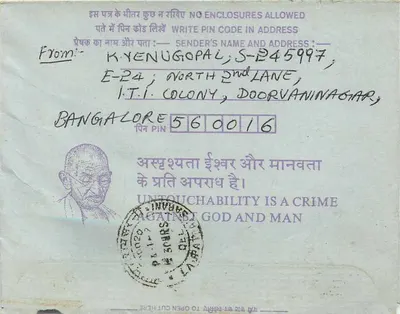 इस पत्र के भीतर कुछ न रखिए NO ENCLOSURES ALLOWED
पते में पिन कोड लिखें WRITE PIN CODE IN ADDRESS
प्रेषक का नाम और पता :— SENDER'S NAME AND ADDRESS :—
From:- K.VENUGOPAL, S-245997,
E-24; NORTH 2nd LANE,
I.T.I. COLONY, DOORVANINAGAR,
BANGALORE
पिन PIN 560016
अस्पृश्यता ईश्वर और मानवता
के प्रति अपराध है।
UNTOUCHABILITY IS A CRIME
AGAINST GOD AND MAN
TO OPEN CUT HERE